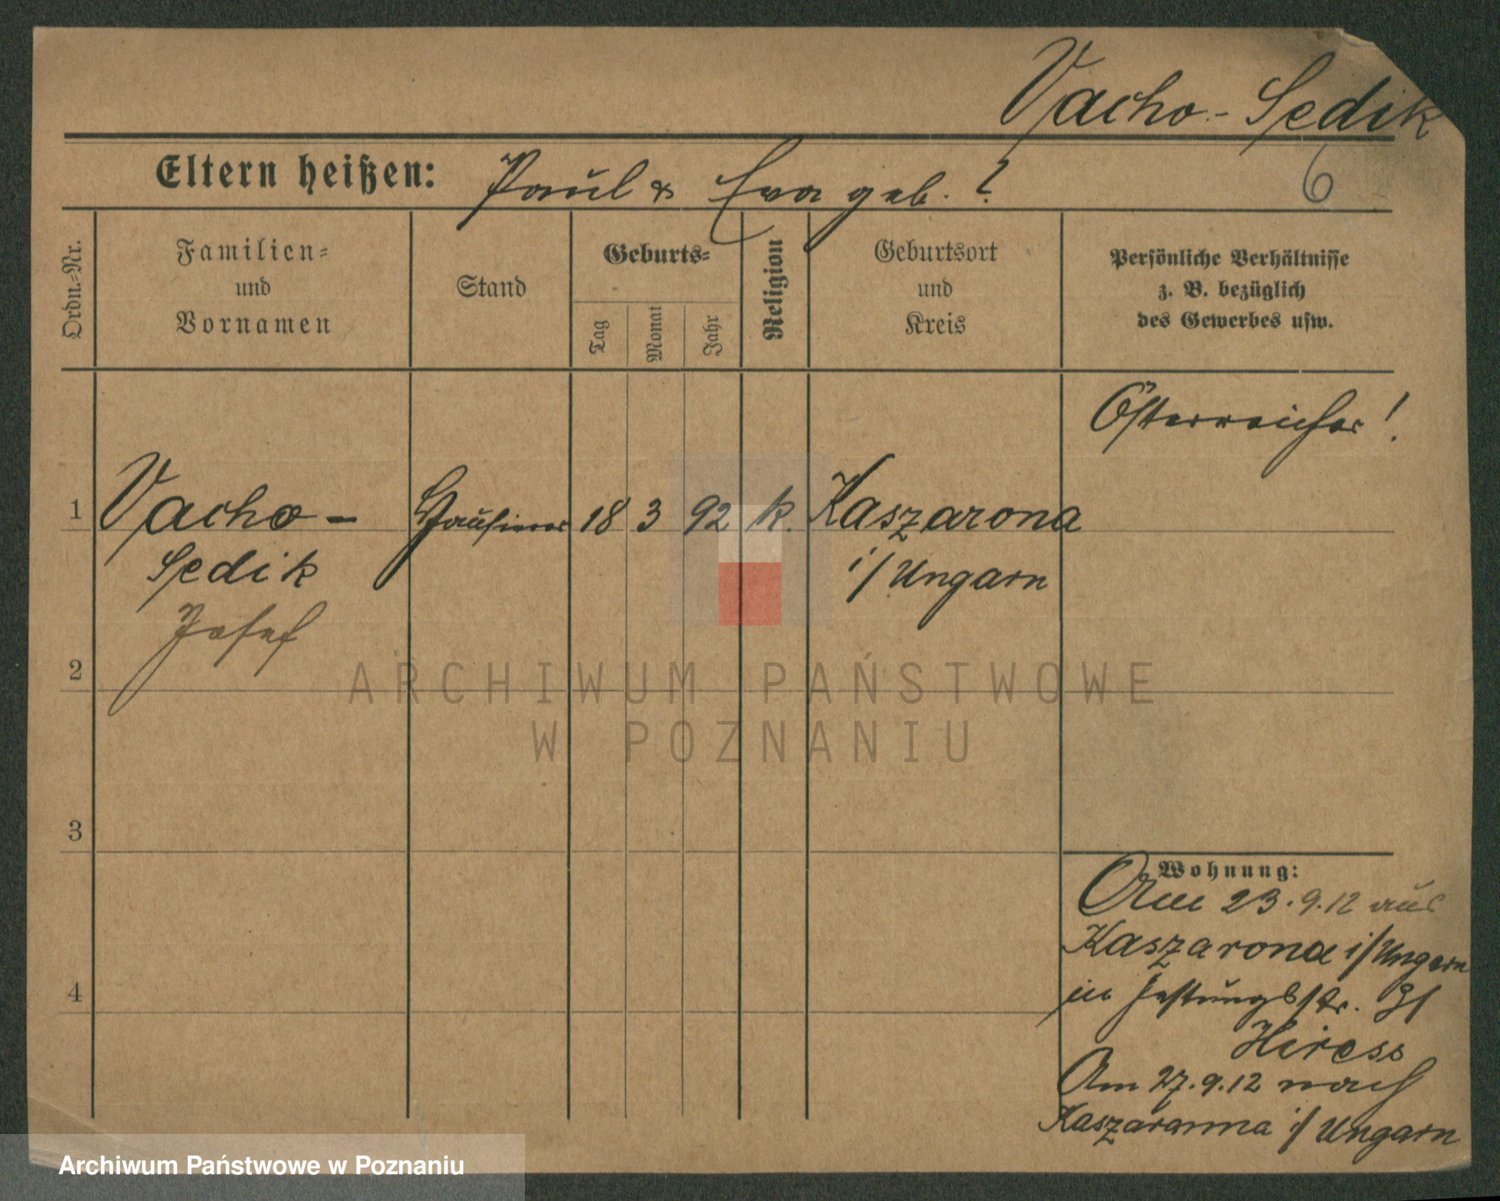 Vacho-Sedik
Eltern heißen: Paul & Eva geb. ?
6
Ordn.-Nr.
Familien-
und
Vornamen
Stand
Geburts-
Tag
Monat
Jahr
Religion
Geburtsort
und
Kreis
Persönliche Verhältnisse
z. B. bezüglich
des Gewerbes usw.
Österreicher!
1 Vacho- Hausierer 18 3 92 k. Kaszarona
Sedik i/Ungarn
Josef
2
3
4
Wohnung:
Am 23.9.12 aus
Kaszarona i/Ungarn
in Festungsstr.
Hiress
Am 27.9.12 nach
Kaszaranna i/Ungarn
ARCHIWUM PAŃSTWOWE
W POZNANIU
Archiwum Państwowe w Poznaniu